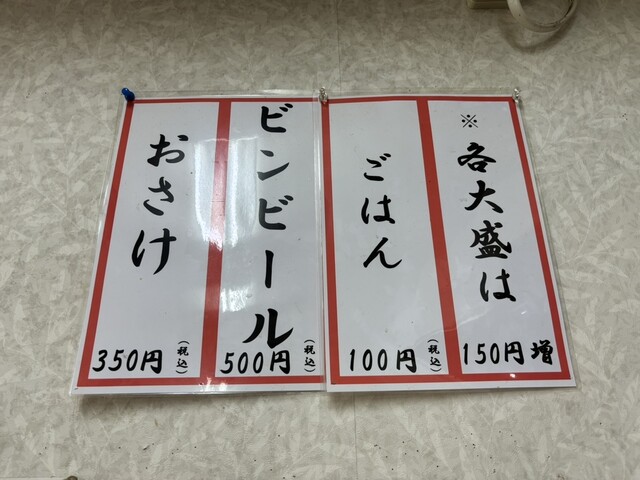 ※各大盛は
150円増
ごはん
100円(税込)
ビンビール
500円(税込)
おさけ
350円(税込)